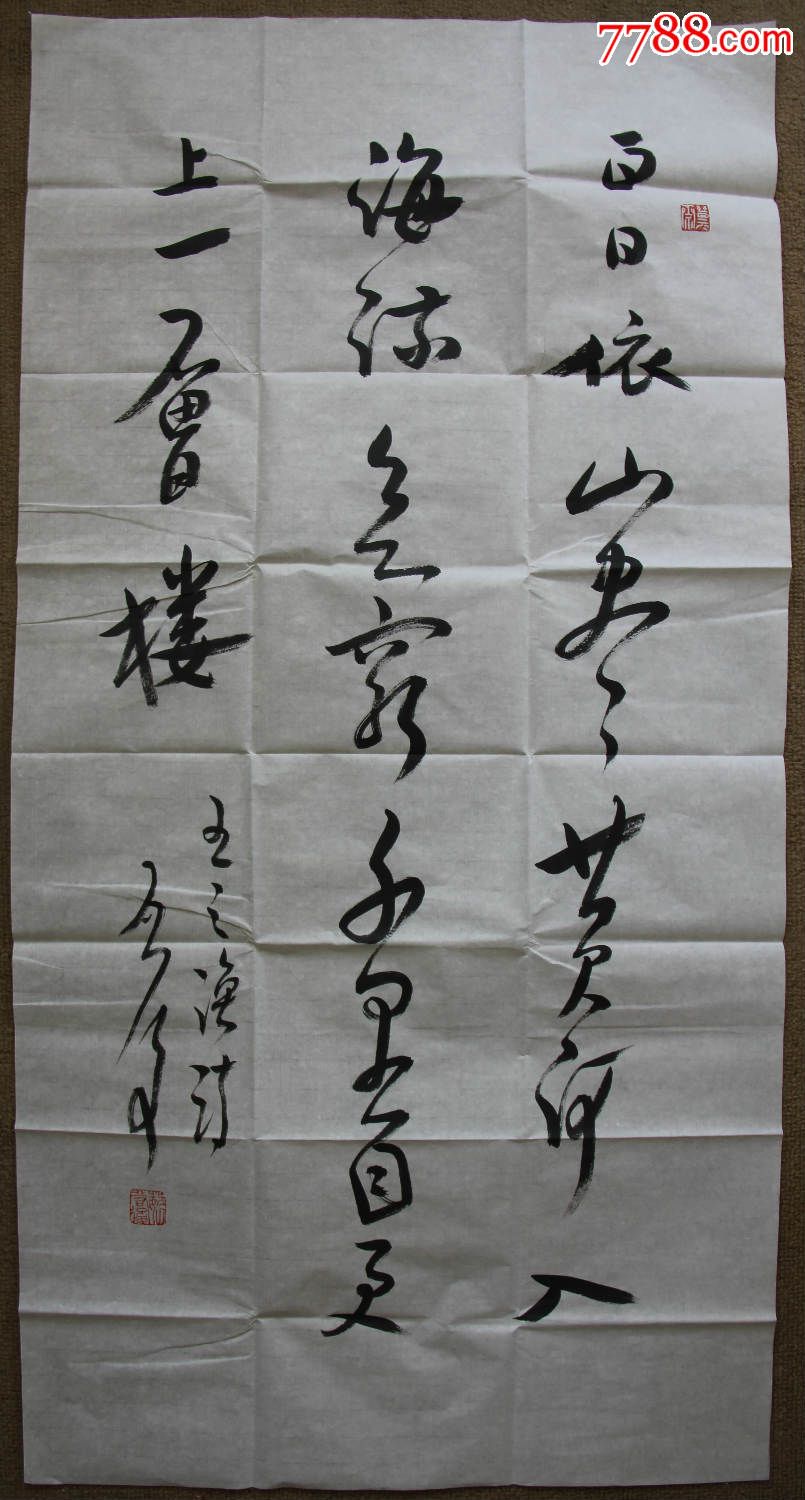 7788.com
白日依山尽黄河入
海流欲穷千里目更
上一層楼
王之涣诗